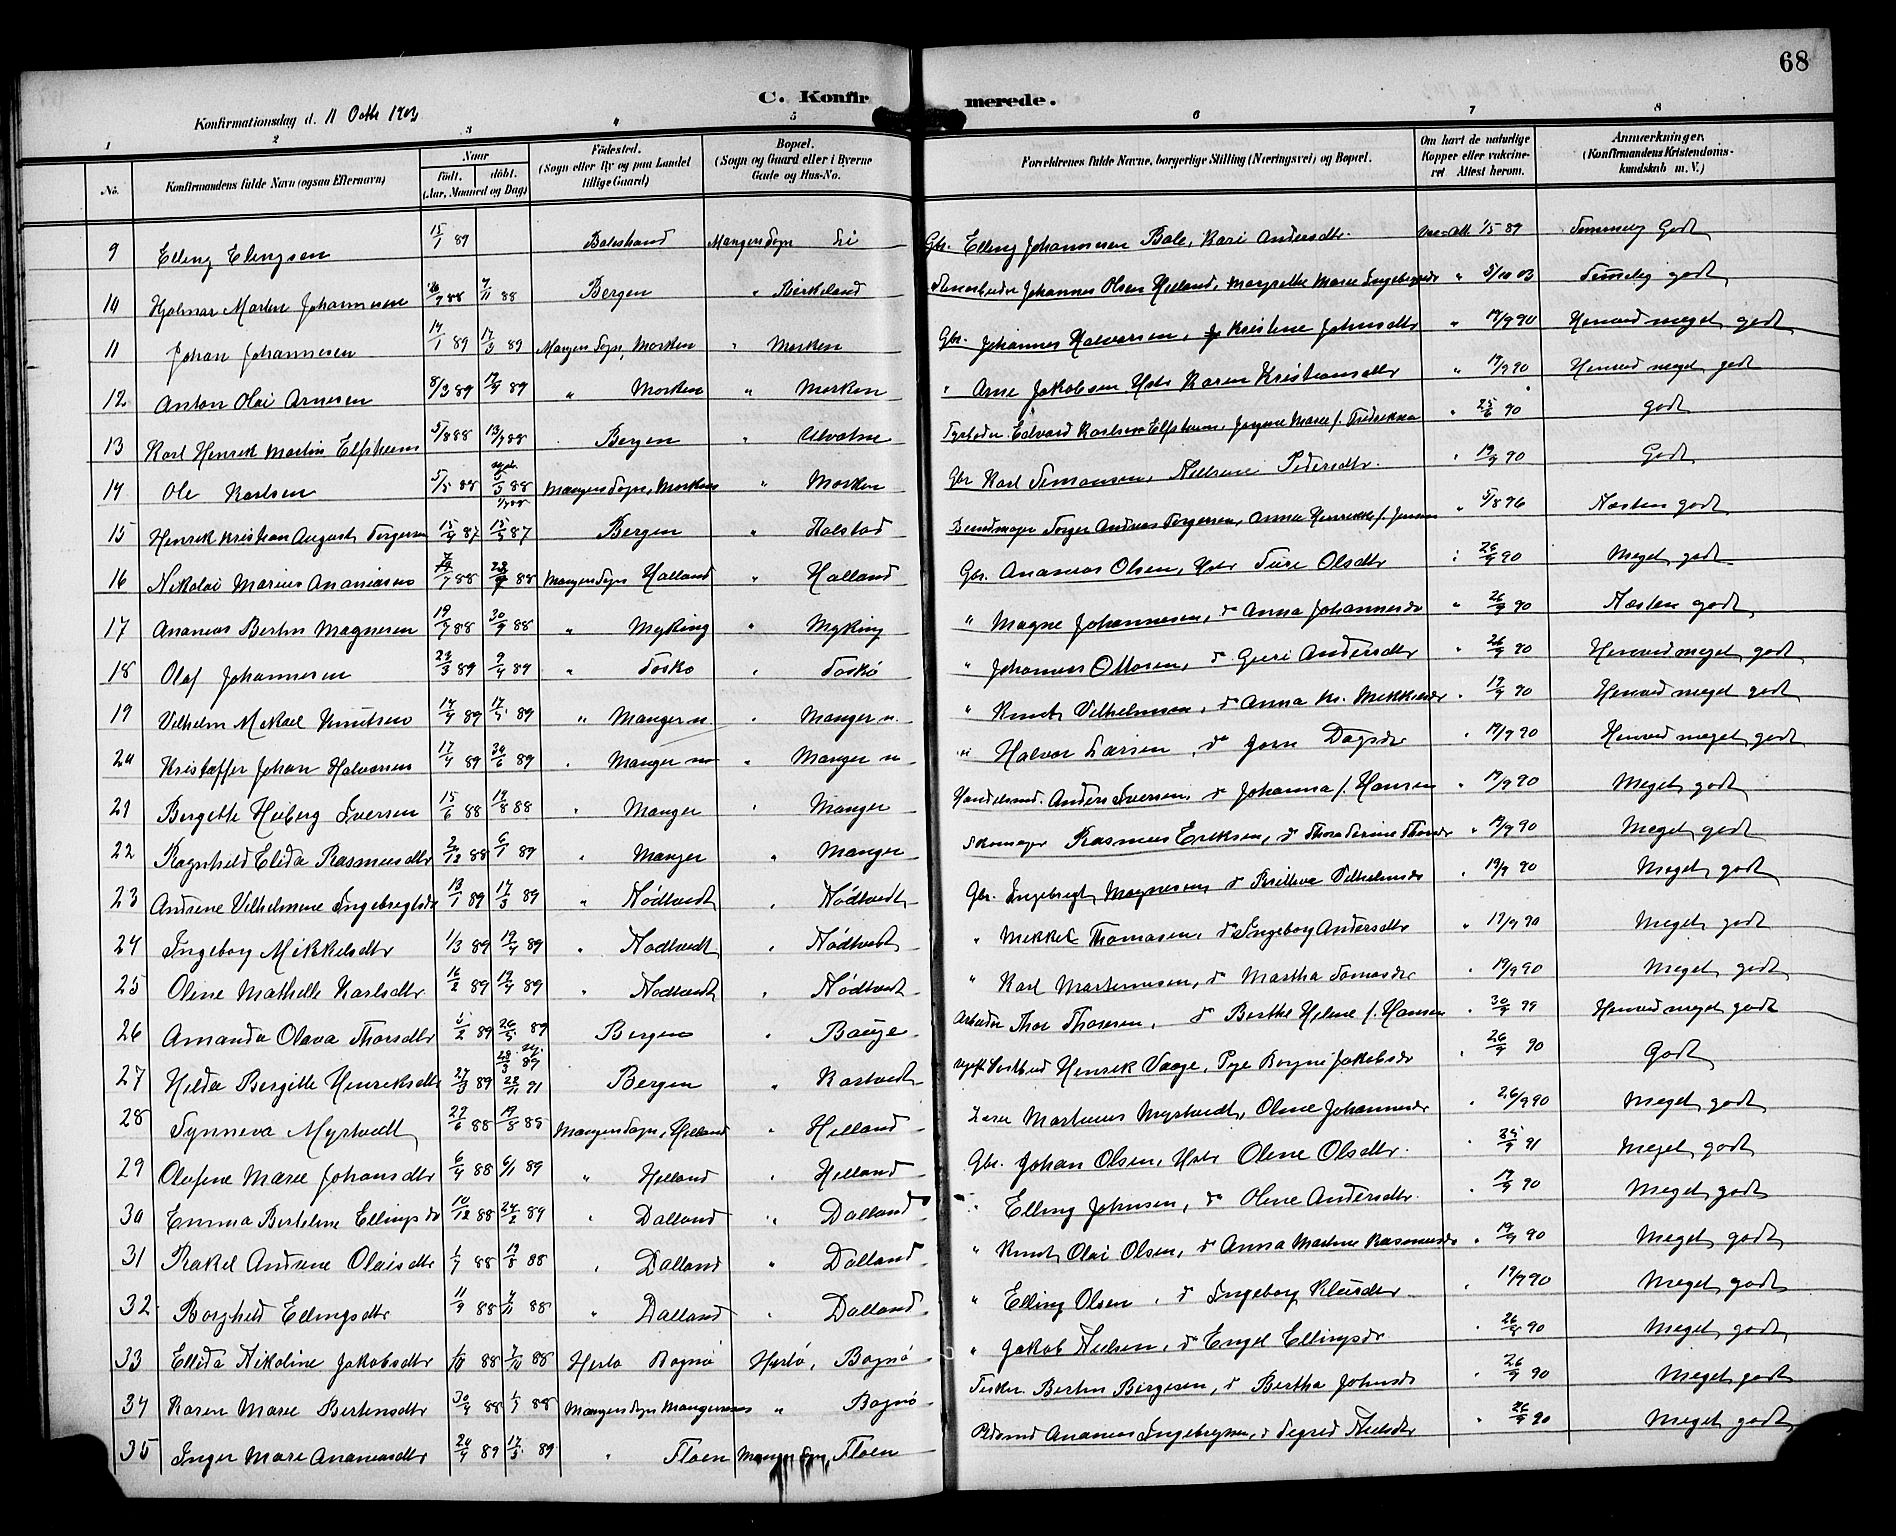 68
C. Konfirmerede.
Konfirmationsdag d. 11 Octb 1903
1 2 3 4 5 6 7 8
No. Konfirmandens fulde Navn (ogsaa Efternavn) Naar født. døbt. (Aar, Maaned og Dag) Fødested. (Sogn eller By og paa Landet tillige Gaard) Bopæl. (Sogn og Gaard eller i Byerne Gade og Hus-No. Forældrenes fulde Navne, borgerlige Stilling (Næringsvei) og Bopæl. Om havt de naturlige Kopper eller vakcineret Attest herom. Anmærkninger. (Konfirmandens Kristendomskundskab m. V.)
9 Elling Elingsen 15/1 89 Balestrand Mangers Sogn Li Gbr. Elling Johannesen Bale, Kari Andersdtr. 1/5 89 Temmelig Godt
10 Hjalmar Martin Johannesen 88 7/11 88 Bergen " Birkeland Johannes Olsen Helland, Margrethe Marie Ingebrigtsdr " 5/10 03 Temelig godt
11 Johan Johannesen 14/1 89 17/3 89 Mangers Sogn, Morken " Morken Gbr. Johannes Halvorsen, Kristine Johnsdtr " 19/9 90 Henved meget godt
12 Anton Olai Arnesen 8/3 89 17/4 89 " Morken " Morken " Arne Jakobsen Hstr Karen Kristiansdtr " 19/9 90 Henved meget godt
13 Karl Henrik Martin Elfstrøm 5/8 88 13/9 88 Bergen " Ulvatne Fyrbøder Edvard Karlsen Elfstrøm, Jørgine Marie f. Fredrikke " 25/6 90 godt
14 Ole Karlsen 5/5 88 5/5 88 Mangers Sogn, Morken " Morken Gbr Karl Simonsen, Nilsine Pedersdtr. " 19/9 90 Godt
15 Henrik Kristian August Torgersen 15/4 87 15/5 87 Bergen " Halstad Torger Andreas Torgersen, Anna Henrikke f. Jensen " 5/8 96 Næsten godt
16 Nikolai Marius Ananiasen 88 88 Mangers Sogn Halland " Halland Gbr. Ananias Olsen, Hstr Siri Olsdtr " 26/9 90 Meget godt
17 Ananias Bertin Magnesen 19/7 88 30/9 88 " Myking " Myking " Magne Johannesen, do Anna Johannesdr " 26/9 90 Næsten godt
18 Olaf Johannesen 23/3 89 9/4 89 " Toskø " Toskø " Johannes Ottosen, do Guri Andersdtr " 26/9 90 Henved meget godt
19 Vilhelm Mikael Knutsen 14/4 89 17/5 89 " Manger n. " Manger n. " Knut Vilhelmsen, do Anna M. Mikkelsdr " 19/9 90 Henved meget godt
20 Kristoffer Johan Halvorsen 17/4 89 30/6 89 " Manger n " Manger n " Halvor Larsen, do Jorn Dagsdr " 19/9 90 Henved meget godt
21 Bergitte Heiberg Iversen 15/6 88 19/8 88 " Manger " Manger Handelsmd. Anders Iversen, do Johanna f. Hansen " 19/9 90 Meget godt
22 Ragnhild Elida Rasmusdtr 2/12 88 6/1 89 " Manger " Manger Skomager Rasmus Eriksen, do Thora Serine Thorsdr " 19/9 90 Meget godt
23 Andrine Vilhelmine Ingebrigtsdr 13/1 89 17/3 89 " Nødtvedt " Nødtvedt Gbr. Ingebrigt Magnesen do Brithe Vilhelmsdr " 19/9 90 Meget godt
24 Ingeborg Mikkelsdtr 1/3 89 19/4 89 " Nødtvedt " Nødtvedt " Mikkel Thomasen, do Ingeborg Andersdtr " 19/9 90 Meget godt
25 Oline Mathilde Karlsdtr 16/2 89 19/4 89 " Nødtvedt " Nødtvedt " Karl Martinusen, do Martha Tomasdr " 19/9 90 Meget godt
26 Amanda Olava Thorsdtr 5/2 89 26/5 89 Bergen " Bauge Arbeider Thor Thorsen, do Berthe Helene f. Hansen " 30/9 99 Henved meget godt
27 Hilda Bergitte Henriksdtr 27/3 89 28/3 89 22/11 91 Bergen " Kartvedt Henrik Vaage, Pige Borgni Jakobsdr " 26/9 90 Godt
28 Synneva Myrtvedt 29/6 88 19/8 88 Mangers Sogn, Helland " Helland Martinus Myrtvedt, Oline Johannesdr " 26/9 90 Meget godt
29 Olufine Marie Johansdtr 6/9 88 6/1 89 " Helland " Helland Gbr. Johan Olsen, Hstr Oline Olsdtr. " 91 Meget godt
30 Emma Bertine Ellingsdr 10/12 88 24/2 89 " Dalland " Dalland " Elling Johnsen, do Oline Andersdtr. " 19/9 90 Meget godt
31 Rakel Andrine Olaisdtr 1/7 88 19/8 88 " Dalland " Dalland " Knut Olai Olsen, do Anna Martine Rasmusdr " 19/9 90 Meget godt
32 Borghild Ellingsdtr 11/9 88 4/11 88 " Dalland " Dalland " Elling Olsen, do Ingeborg Klausdtr " 19/9 90 Meget godt
33 Ellida Nikoline Jakobsdtr 88 7/10 88 Herlø Bognø Herlø, Bognø " Jakob Nilsen, do Engel Ellingsdr " 26/9 90 Meget godt
34 Karen Marie Bertinsdtr 30/4 88 88 Mangers Sogn Mangernes " Bognø Fisker Bertin Børgesen, do Bertha Johnsdr " 26/9 90 Meget godt
35 Inger Marie Ananiasdtr 20/4 89 17/5 89 " Floen Mangers Sogn, Floen Ananias Ingebrigtsen, do Sigrid Nilsdtr " 26/9 90 Meget godt